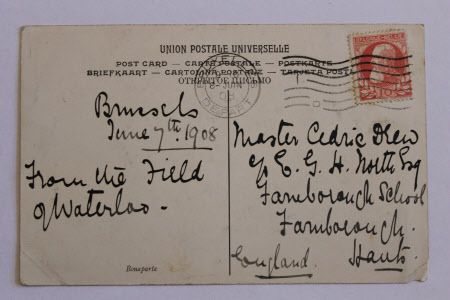 UNION POSTALE UNIVERSELLE
POST CARD — CARTE POSTALE — POSTKARTE
BRIEFKAART — CARTOLINA POSTALE — TARJETA POSTAL
ОТКРЫТОЕ ПИСЬМО
Brussels
June 7th. 1908
From the Field
of Waterloo -
Bonaparte
Master Cedric Drew
c/o E. G. H. North Esq
Farnborough School
Farnborough.
Hants.
England.